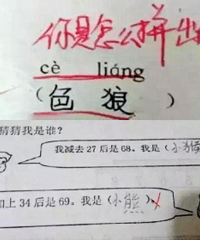 你是怎么拼出
cè liáng
(色狼)
猜猜我是谁?
我减去27后是68。我是(小猴
加上34后是69。我是(小熊)